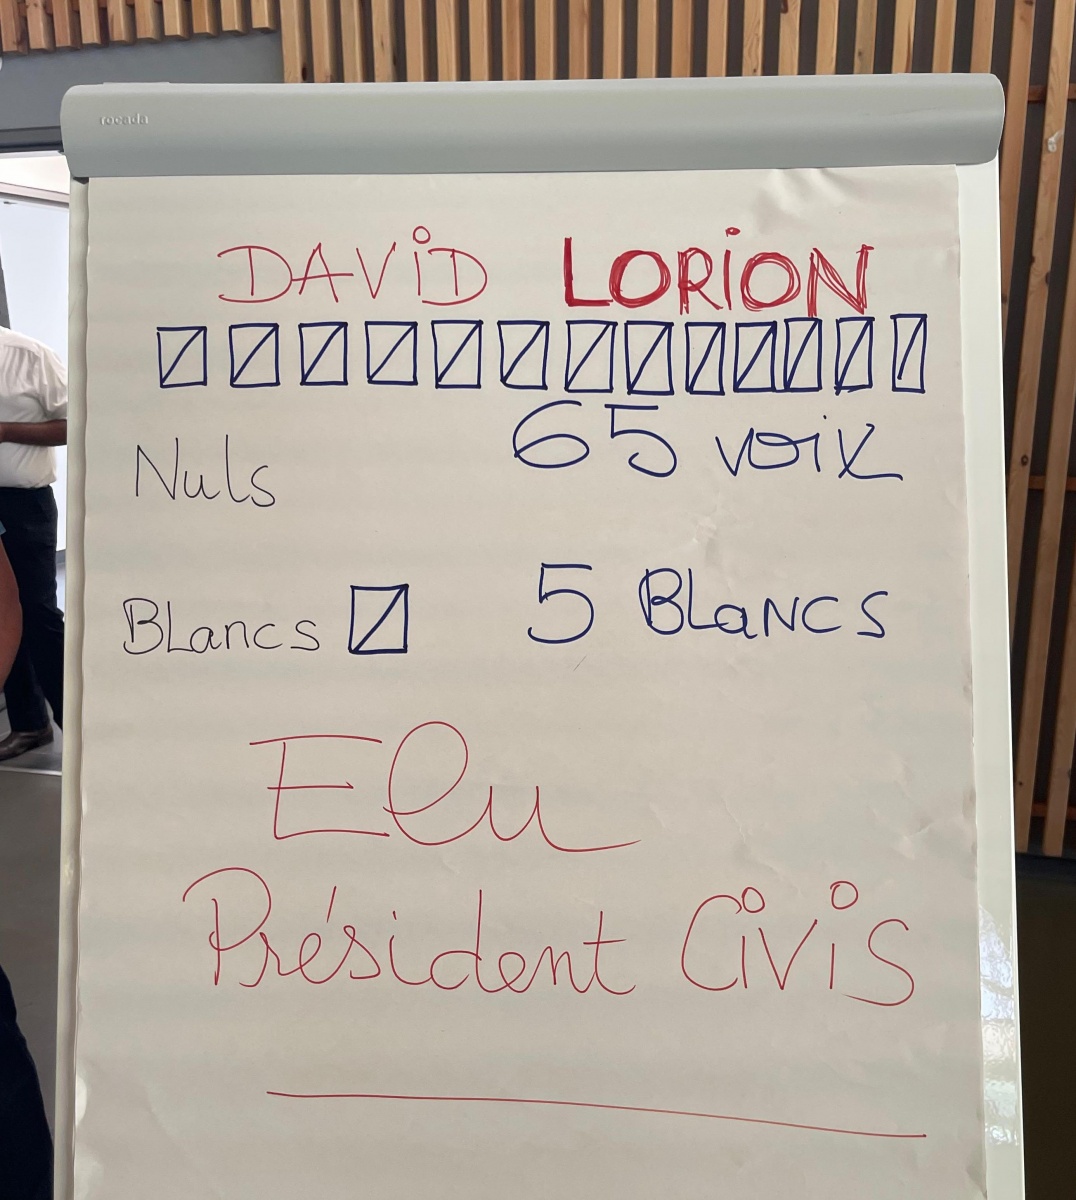 rocada
DAViD LORiON
65 voix
Nuls
BLancs 5 BLaNCS
Elu
Président CiViS